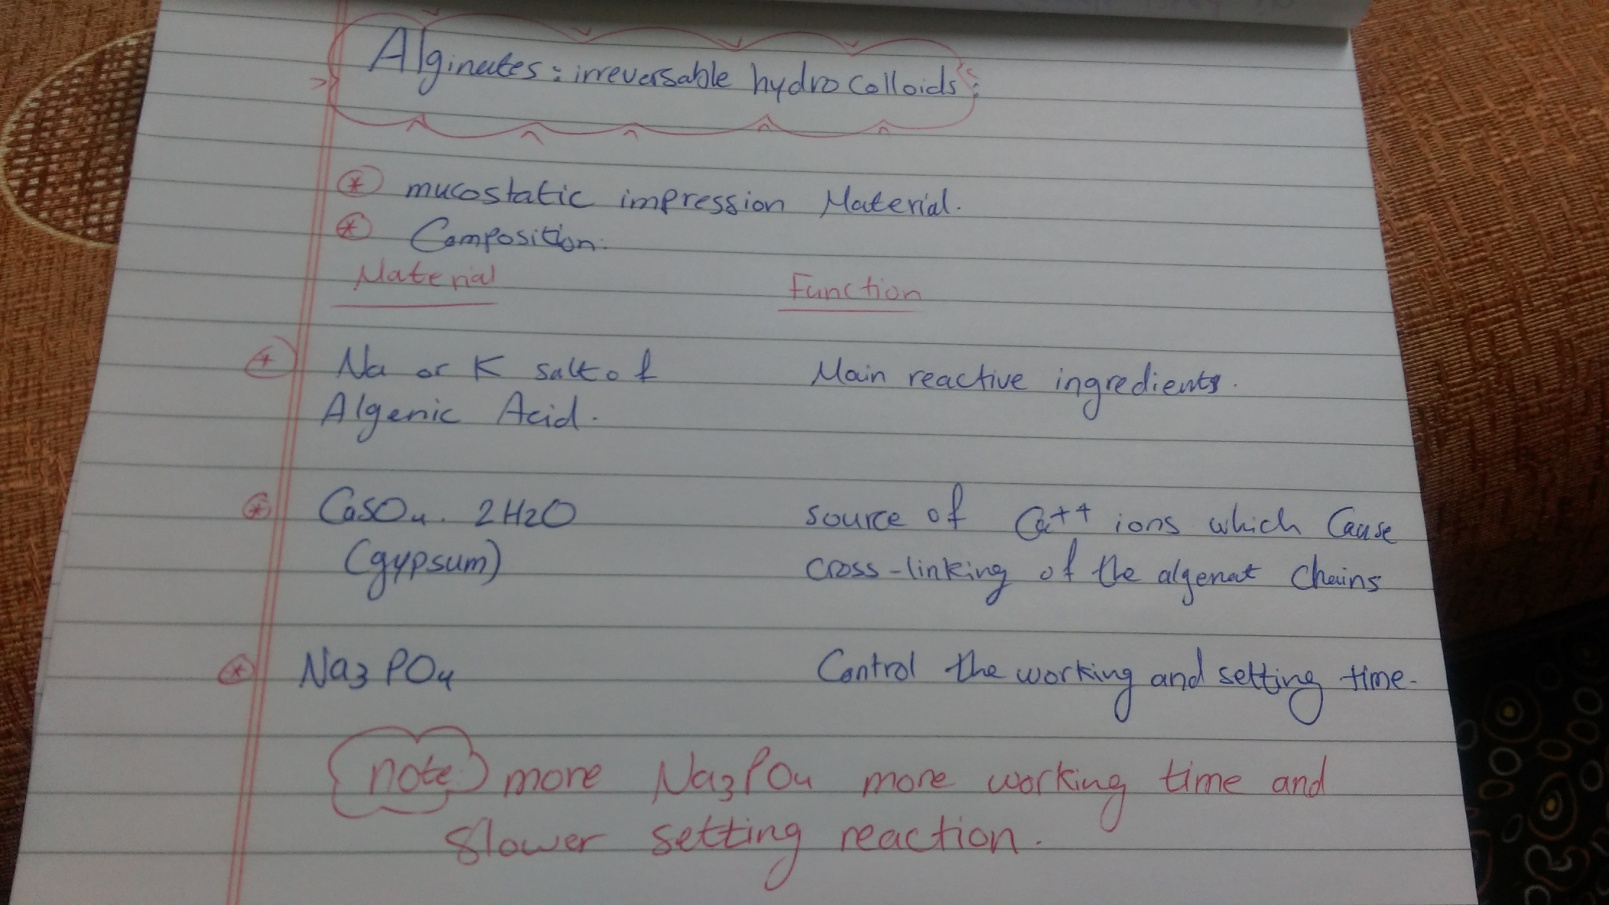 Alginates: irreversable hydrocolloids:
* mucostatic impression Material.
* Composition:
Material Function
* Na or K salt of Main reactive ingredients.
Algenic Acid.
* CaSO4. 2H2O source of Ca++ ions which Cause
(gypsum) cross-linking of the algenat Chains
* Na3PO4 Control the working and setting time.
note more Na3PO4 more working time and
slower setting reaction.